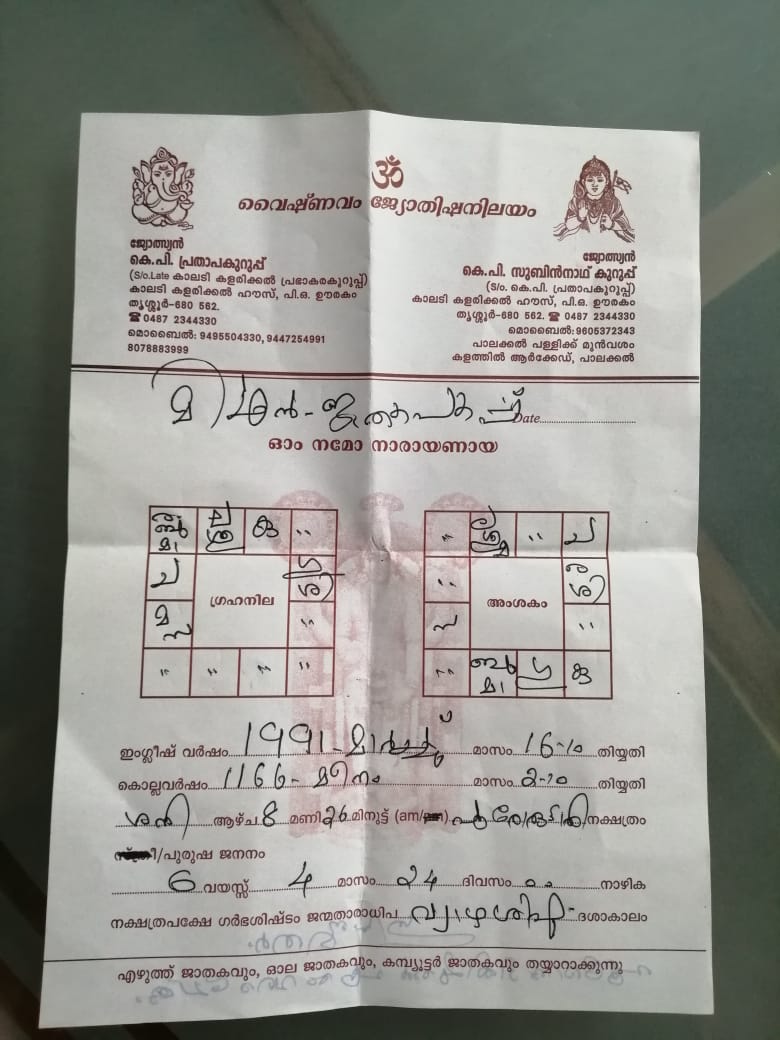 ॐ
വൈഷ്ണവം ജ്യോതിഷനിലയം
ജ്യോത്സ്യൻ
കെ.പി. പ്രതാപകുറുപ്പ്
(S/o.Late കാലടി കളരിക്കൽ പ്രഭാകരകുറുപ്പ്)
കാലടി കളരിക്കൽ ഹൗസ്, പി.ഒ. ഊരകം
തൃശ്ശൂർ-680 562.
☎ 0487 2344330
മൊബൈൽ: 9495504330, 9447254991
8078883999
ജ്യോത്സ്യൻ
കെ.പി. സുബിൻനാഥ് കുറുപ്പ്
(S/o. കെ.പി. പ്രതാപകുറുപ്പ്)
കാലടി കളരിക്കൽ ഹൗസ്, പി.ഒ. ഊരകം
തൃശ്ശൂർ-680 562. ☎ 0487 2344330
മൊബൈൽ:9605372343
പാലക്കൽ പള്ളിക്ക് മുൻവശം
കളത്തിൽ ആർക്കേഡ്, പാലക്കൽ
Date
ഓം നമോ നാരായണായ
കു
ച
ഗ്രഹനില
ശി
മ
സ
ച
അംശകം
ശി
സ
മാ
കു
ഇംഗ്ലീഷ് വർഷം 1991-മാർച്ച് മാസം 16-ാം തിയ്യതി
കൊല്ലവർഷം 1166-മീനം മാസം 2-ാം തിയ്യതി
ശനി ആഴ്ച 8 മണി 26 മിനുട്ട് (am/pm) പൂരോരുട്ടാതി നക്ഷത്രം
സ്ത്രീ/പുരുഷ ജനനം
6 വയസ്സ് 4 മാസം 24 ദിവസം നാഴിക
നക്ഷത്രപക്ഷേ ഗർഭശിഷ്ടം ജന്മതാരാധിപ വ്യാഴശിഷ്ട ദശാകാലം
എഴുത്ത് ജാതകവും, ഓല ജാതകവും, കമ്പ്യൂട്ടർ ജാതകവും തയ്യാറാക്കുന്നു